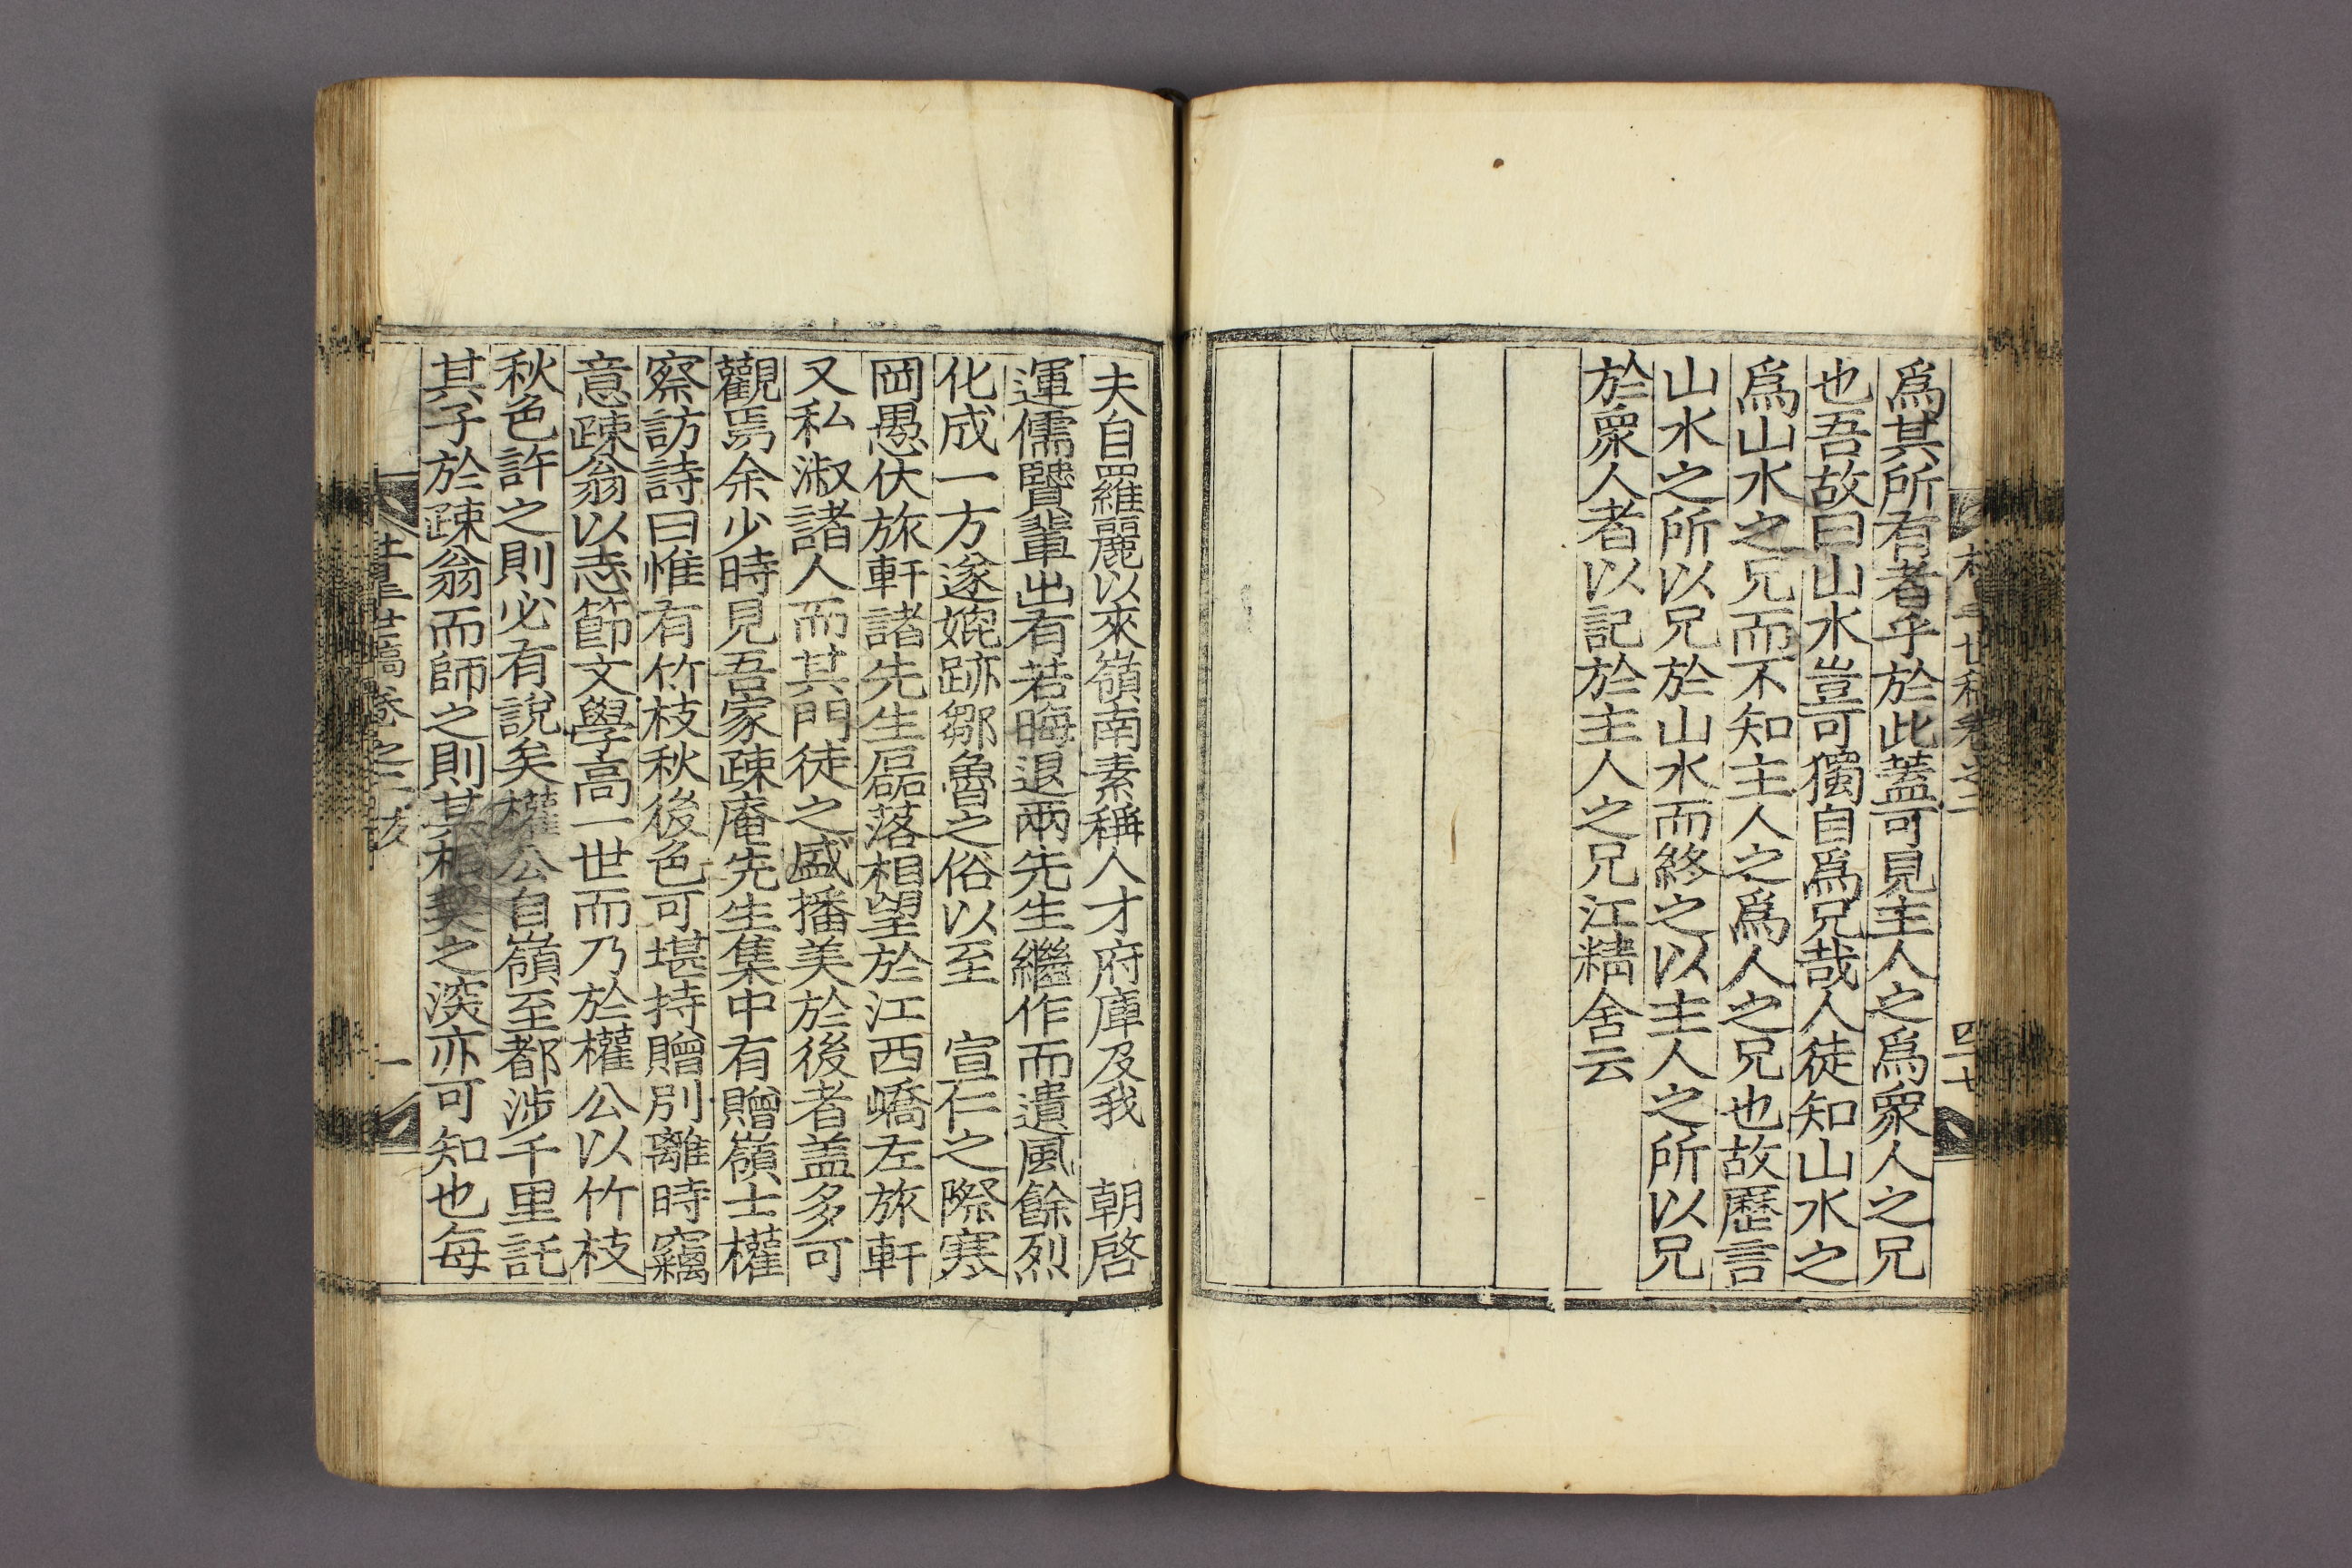 爲其所有者乎於此蓋可見主人之爲衆人之兄
也吾故曰山水豈可獨自爲兄哉人徒知山水之
爲山水之兄而不知主人之爲人之兄也故歷言
山水之所以兄於山水而終之以主人之所以兄
於衆人者以記於主人之兄江精舍云
四十七
夫自羅麗以來嶺南素稱人才府庫及我　朝啓
運儒賢輩出有若晦退兩先生繼作而遺風餘烈
化成一方遂媲跡鄒魯之俗以至　宣仁之際寒
岡愚伏旅軒諸先生磊落相望於江西嶠左旅軒
又私淑諸人而其門徒之盛播美於後者盖多可
觀焉余少時見吾家疎庵先生集中有贈嶺士權
察訪詩曰惟有竹枝秋後色可堪持贈別離時竊
意疎翁以志節文學高一世而乃於權公以竹枝
秋色許之則必有說矣權公自嶺至都涉千里託
其子於疎翁而師之則其相契之深亦可知也每
世稿卷之二 跋
一